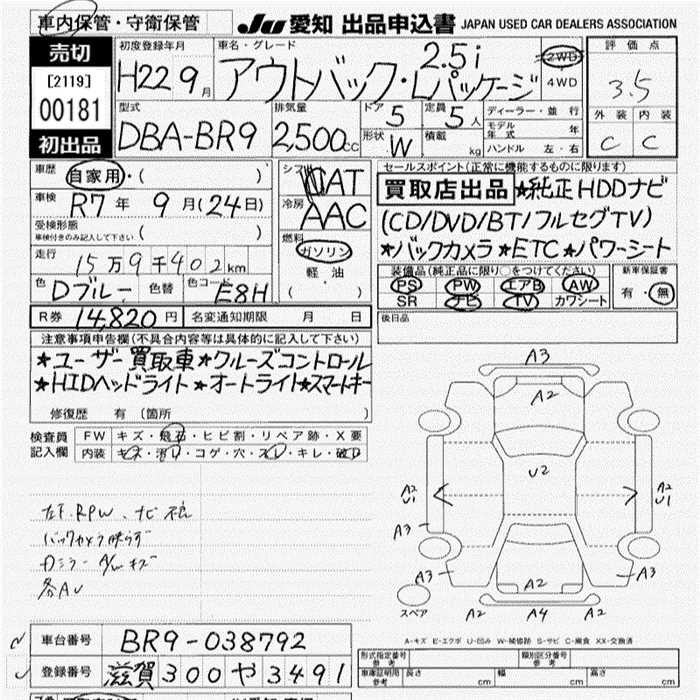 車内保管・守衛保管
JU 愛知 出品申込書 JAPAN USED CAR DEALERS ASSOCIATION
売切
[2119]
00181
初出品
初度登録年月
H22 9月
車名・グレード
2.5i
アウトバック・Lパッケージ
2WD
4WD
評価点
3.5
外装 内装
C C
型式
DBA-BR9
排気量
2,500cc
ドア 5
定員 5人
形状 W
積載 kg
ディーラー・並行
モデル年式 年
ハンドル 左・右
車歴
自家用・( )
車検
R7年 9月(24日)
受検形態
車検付きのみ記入して下さい ( )
走行
15万9千402km
色 Dブルー 色替 色コード E8H
シフト
AT
冷房
AAC
燃料
ガソリン
軽油
( )
セールスポイント(正常に機能するものに限ります)
買取店出品 ★純正HDDナビ
(CD/DVD/BT/フルセグTV)
★バックカメラ★ETC★パワーシート
装備品(純正品に限り○をつけてください)
PS PW エアB AW
SR ナビ TV カワシート
新車保証書
有・無
R券 14,820円 名変通知期限 月 日
後日品
注意事項申告欄(不具合内容等は具体的に記入して下さい)
★ユーザー買取車★クルーズコントロール
★HIDヘッドライト★オートライト★スマートキー
修復歴 有 (箇所 )
検査員記入欄
FW キズ・飛石・ヒビ割・リペア跡・X要
内装 キズ・汚レ・コゲ・穴・スレ・キレ・破レ
バックカメラ映らず
各AU
A3
A2
U2
A2
U1
A2
U1
A3
A3
A2
A3
スペア
A2 A4 A2
A-キズ E-エクボ U-凹み W-補修跡 S-サビ C-腐食 XX-交換済
車台番号 BR9-038792
登録番号 滋賀300や3491
型式指定番号 参考
類別区分番号 参考
車庫証明用 参考
長さ cm
幅 cm
高さ cm